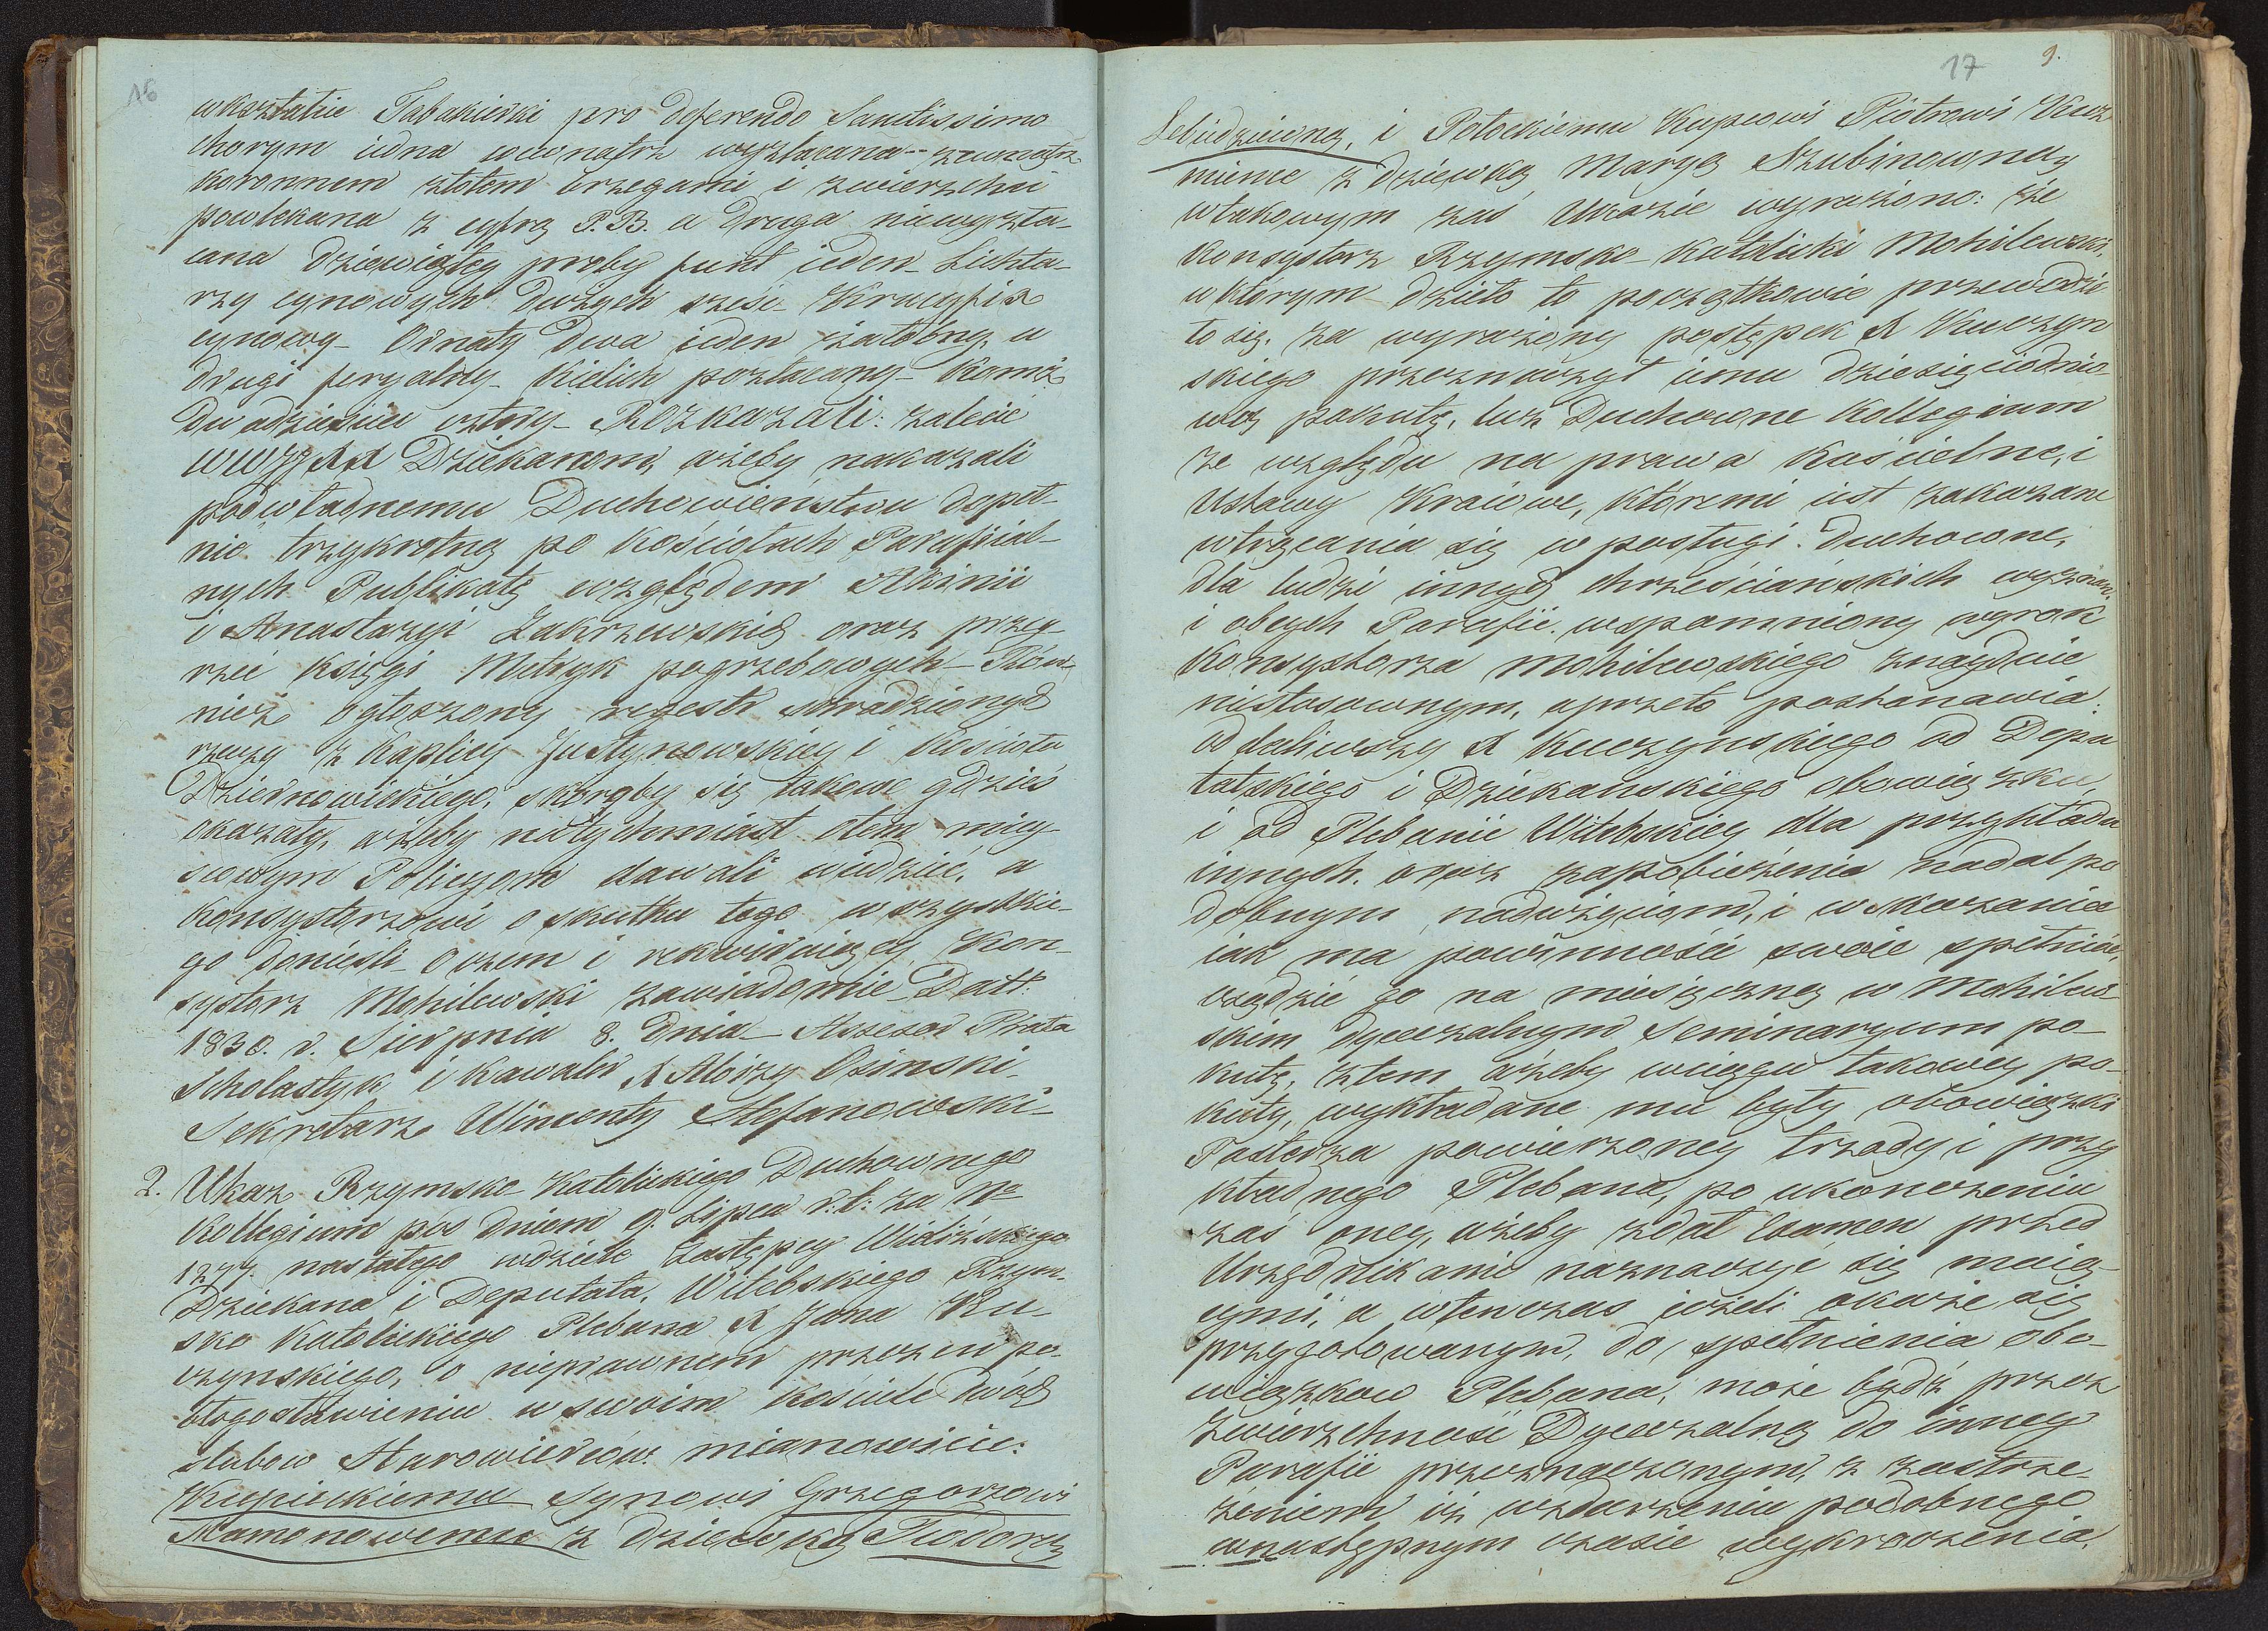 16
wkształcie Tabakierki pro deferendo Sanctissimo
chorym iedna wewnątrz wyzłacana - zewnątrz
koronnem złotem brzegami i zwierzchu
powlekana z cyfrą P.B. a druga niewyzła-
cana dziewiątey proby funt ieden - Lichta-
rzy cynowych dużych sześć - Krucyfix
cynowy - Ornaty dwa ieden żałobny, a
drugi feryalny - Kielich pozłacany - Komż
dwadzieścia cztery - Rozkazali: zalecić
WWJXX Dziekanom, ażeby nakazali
podwładnemu Duchowieństwu dopeł-
nić trzykrotną po Kościołach Parafijal-
nych Publikatę względem
i Anastazyi Zakrzewskich oraz przey-
rzeć Księgi Metryk pogrzebowych - Rów-
nież ogłoszony regestr skradzionych
rzeczy z Kaplicy Justynowskiey i Kościoła
Dziernowickiego, skoroby się takowe gdzieś
okazały, ażeby natychmiast otem miey-
scowym Policyom dawali wiedzieć, a
Konsystorzowi o skutku tego wszystkie-
go donieśli - O czem i rekwiruiący Kon-
systorz Mohilewski zawiadomić - Datt:
1830. r. Sierpnia 8. dnia - Assesor Prałat
Scholastyk i Kawaler X Aloizy Osinski -
Sekretarz Wincenty Stefanowski -
2. Ukaz Rzymsko Katolickiego Duchownego
Kollegium pod dniem 9. Lipca r. t: za N<sup>o</sup>
1277. nastałego wdziele Zastępcy Wieliżskiego
Dziekana i Deputata, Witebskiego Rzym-
sko Katolickiego Plebana X Jana Ku-
czynskiego, o nieprawnem przezeń po-
błogosławieniu w swoim Kościele dwóch
ślubow Starowierców. mianowicie:
Kupieckiemu Synowi Grzegorzowi
Mamonowemu z dziewką Teodorą
17 9.
Lebiedziewną, i Połockiemu Kupcowi Piotrowi Kuz-
mience z dziewką Maryą Szubinowną
wtakowym zaś Ukazie wyrażono: że
Konsystorz Rzymsko-Katolicki Mohilewski,
wktorym dzieło to początkowie przewodzi-
ło się. za wyrażony postępek X Kuczyn-
skiego przeznaczył iemu dziesięciodnio-
wą pokutę, lecz Duchowne Kollegium
ze względu na prawa Kościelne, i
Ustawy Kraiowe, któremi iest zakazane
wtrącania się w posługi Duchowne,
dla ludzi innych chrześciańskich wyznań
i obcych Parafii. wspomniony wyrok
Konsystorza Mohilewskiego znayduie
niestosownym, aprzeto postanawia:
oddaliwszy X Kuczynskiego od Depu-
tatskiego i Dziekańskiego obowiązku,
i od Plebanii Witebskiey dla przykładu
innych. oraz zapobieżenia nadal po-
dobnym nadużyciom, i wskazania
iak ma powinność swoię spełniać,
osądzić go na miesięczną w Mohilew-
skim Dyecezalnym Seminaryum po-
kutę, ztem ażeby wciągu takowey po-
kuty, wykładane mu były obowiązki
Pasterza powierzoney trzody i przy-
kładnego Plebana, po ukonczeniu
zaś oney, ażeby zdał Examen przed
Urzędnikami naznaczyć się maią-
cymi, a wtenczas ieżeli okaże się
przygotowanym, do spełnienia obo-
wiązkow Plebana, może bydź przez
Zwierzchność Dyecezalną do inney
Parafii przeznaczonym, z zastrze-
żeniem iż wzdarzeniu podobnego
wnastępnym czasie wykroczenia,